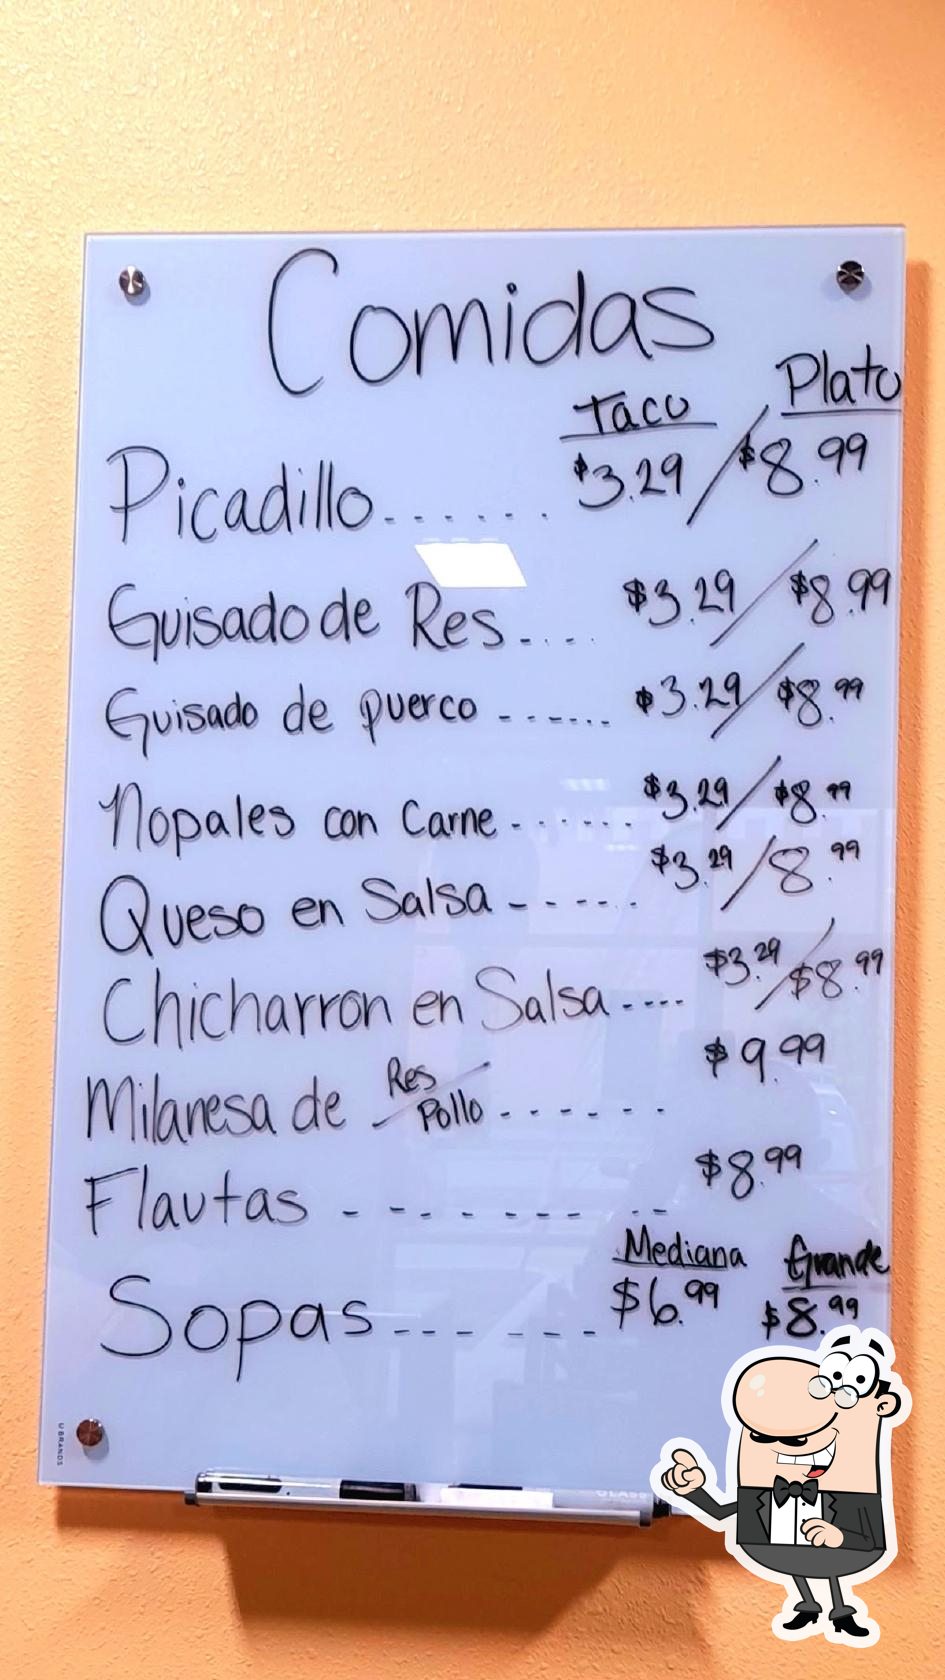 Comidas
Taco Plato
Picadillo...... $3.29 / $8.99
Guisado de Res.... $3.29 / $8.99
Guisado de puerco ------ $3.29 / $8.99
Nopales con Carne ...... $3.29 / $8.99
Queso en Salsa ------ $3.29 / 8.99
Chicharron en Salsa .... $3.29 / $8.99
Milanesa de Res / Pollo ------ $9.99
Flautas -------- $8.99
Mediana Grande
Sopas ------ $6.99 $8.99
U BRANDS
GLASS